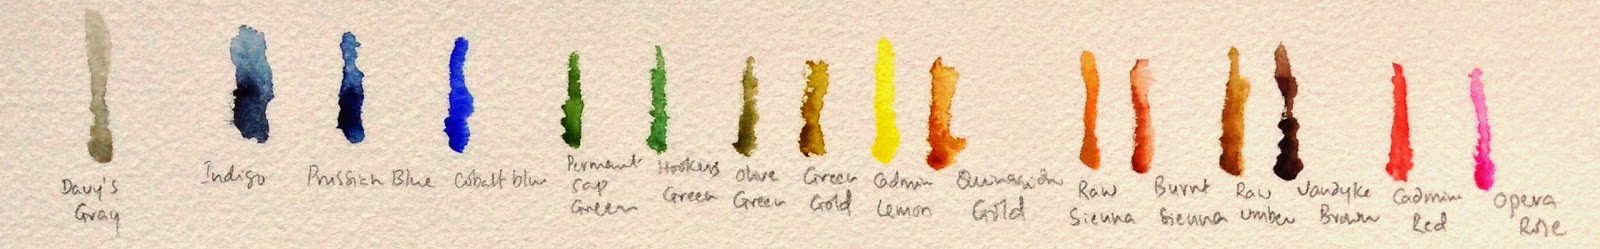 Davy's
Gray
Indigo
Prussian Blue
Cobalt blue
Permant
Sap
Green
Hookers
Green
Olive
Green
Green
Gold
Cadmium
Lemon
Quinacridon
Gold
Raw
Sienna
Burnt
Sienna
Raw
umber
Vandyke
Brown
Cadmium
Red
Opera
Rose